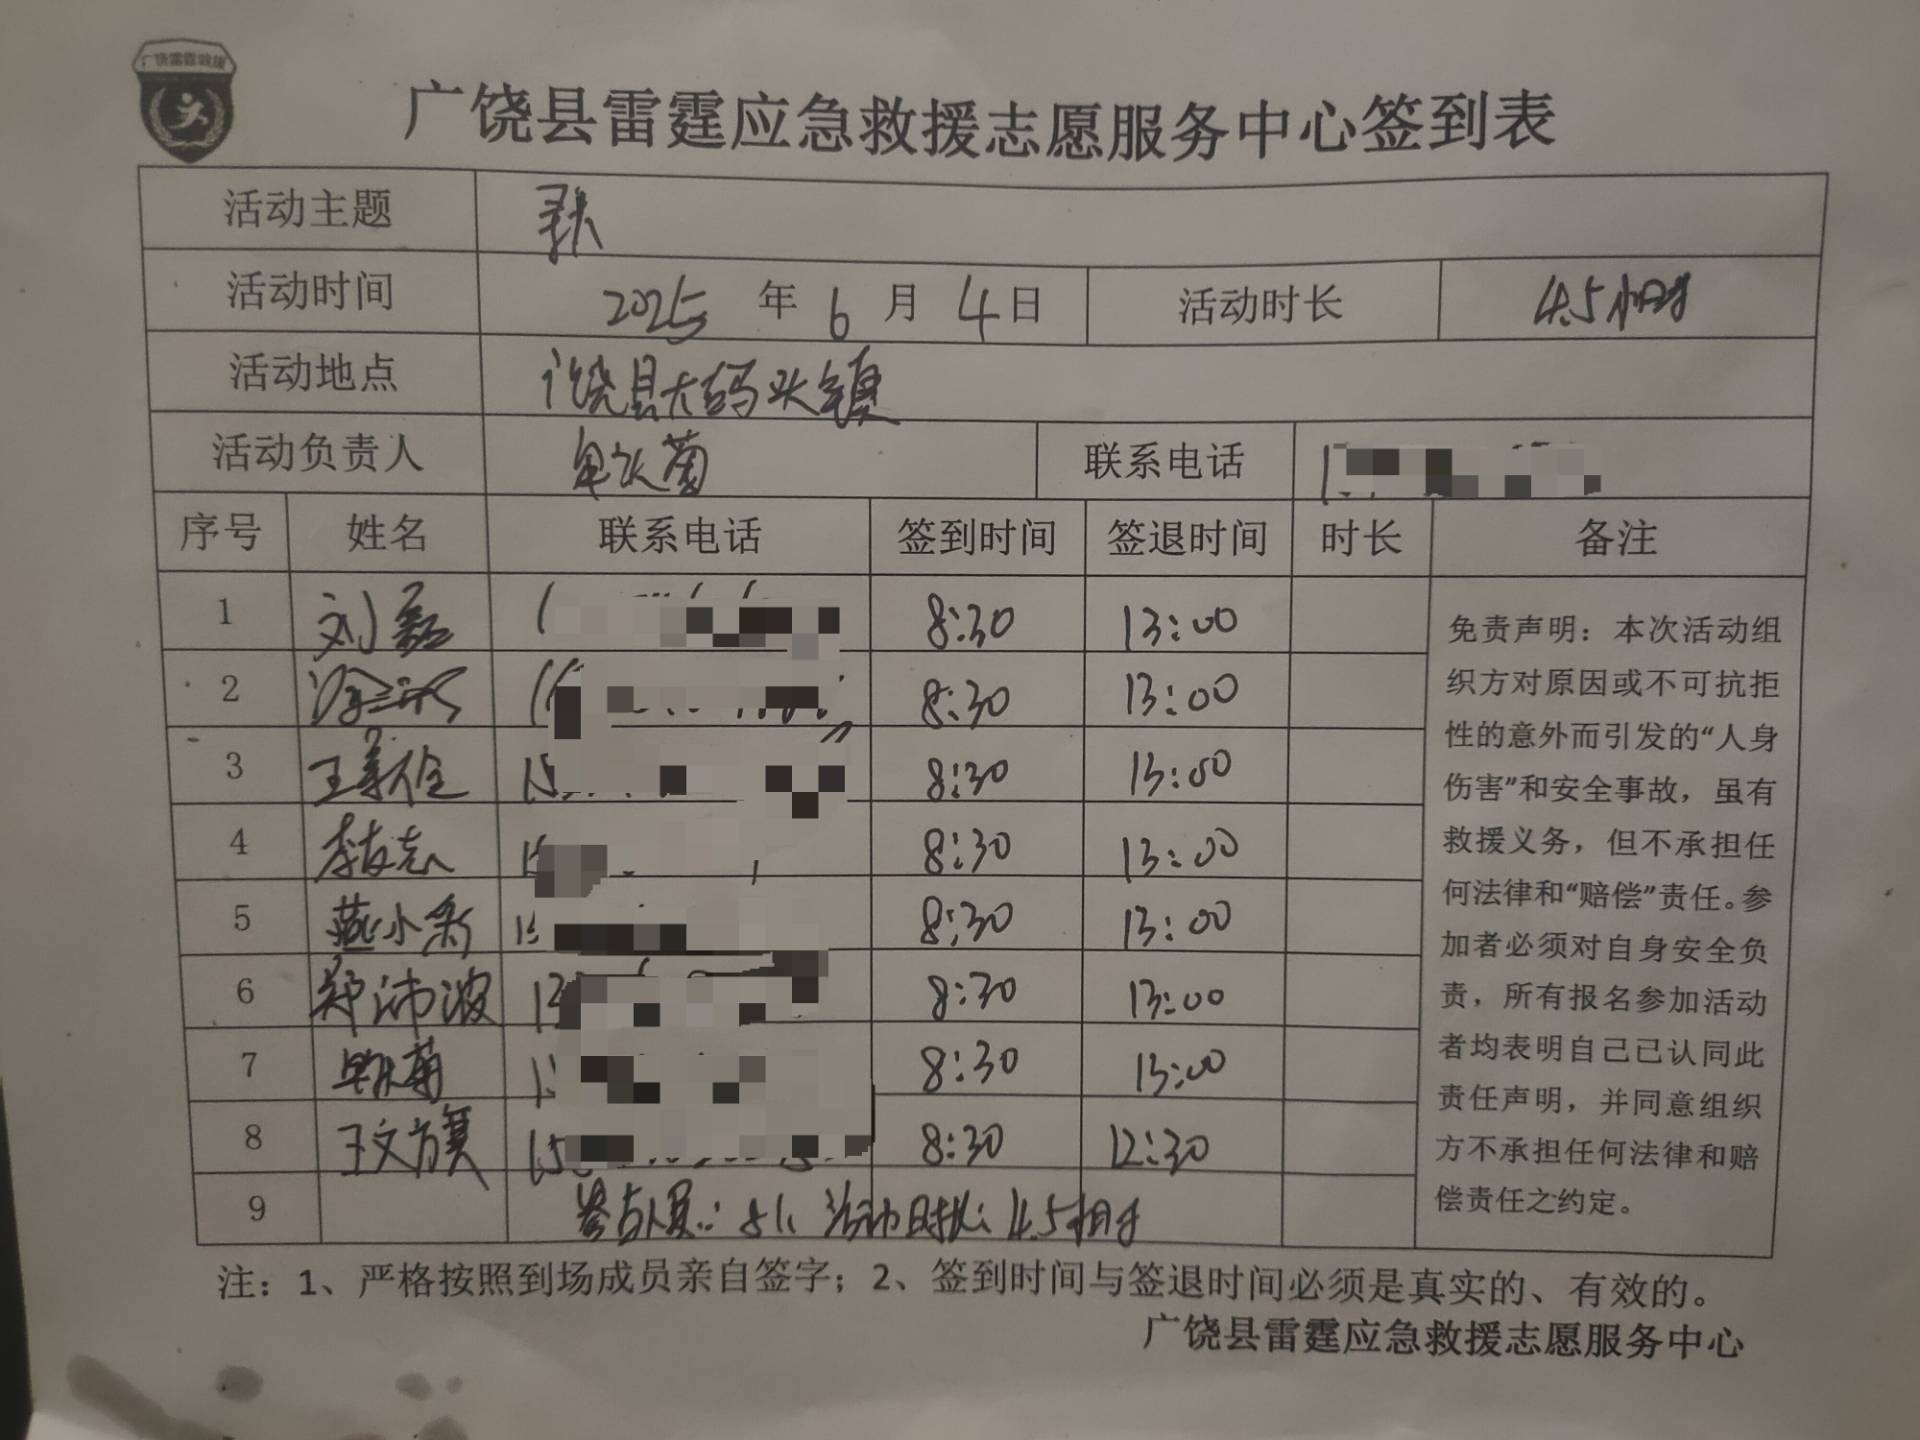 广饶雷霆救援
广饶县雷霆应急救援志愿服务中心签到表
活动主题
活动时间 2025 年 6 月 4 日 活动时长 4.5小时
活动地点 广饶县大码头镇
活动负责人 联系电话
序号 姓名 联系电话 签到时间 签退时间 时长 备注
1 刘磊 8:30 13:00
2 8:30 13:00
3 8:30 13:00
4 李友志 8:30 13:00
5 燕小新 8:30 13:00
6 郑沛波 8:30 13:00
7 8:30 13:00
8 王文方 8:30 12:30
9 参与人员:8人 活动时长:4.5小时
免责声明：本次活动组
织方对原因或不可抗拒
性的意外而引发的“人身
伤害”和安全事故，虽有
救援义务，但不承担任
何法律和“赔偿”责任。参
加者必须对自身安全负
责，所有报名参加活动
者均表明自己已认同此
责任声明，并同意组织
方不承担任何法律和赔
偿责任之约定。
注：1、严格按照到场成员亲自签字；2、签到时间与签退时间必须是真实的、有效的。
广饶县雷霆应急救援志愿服务中心